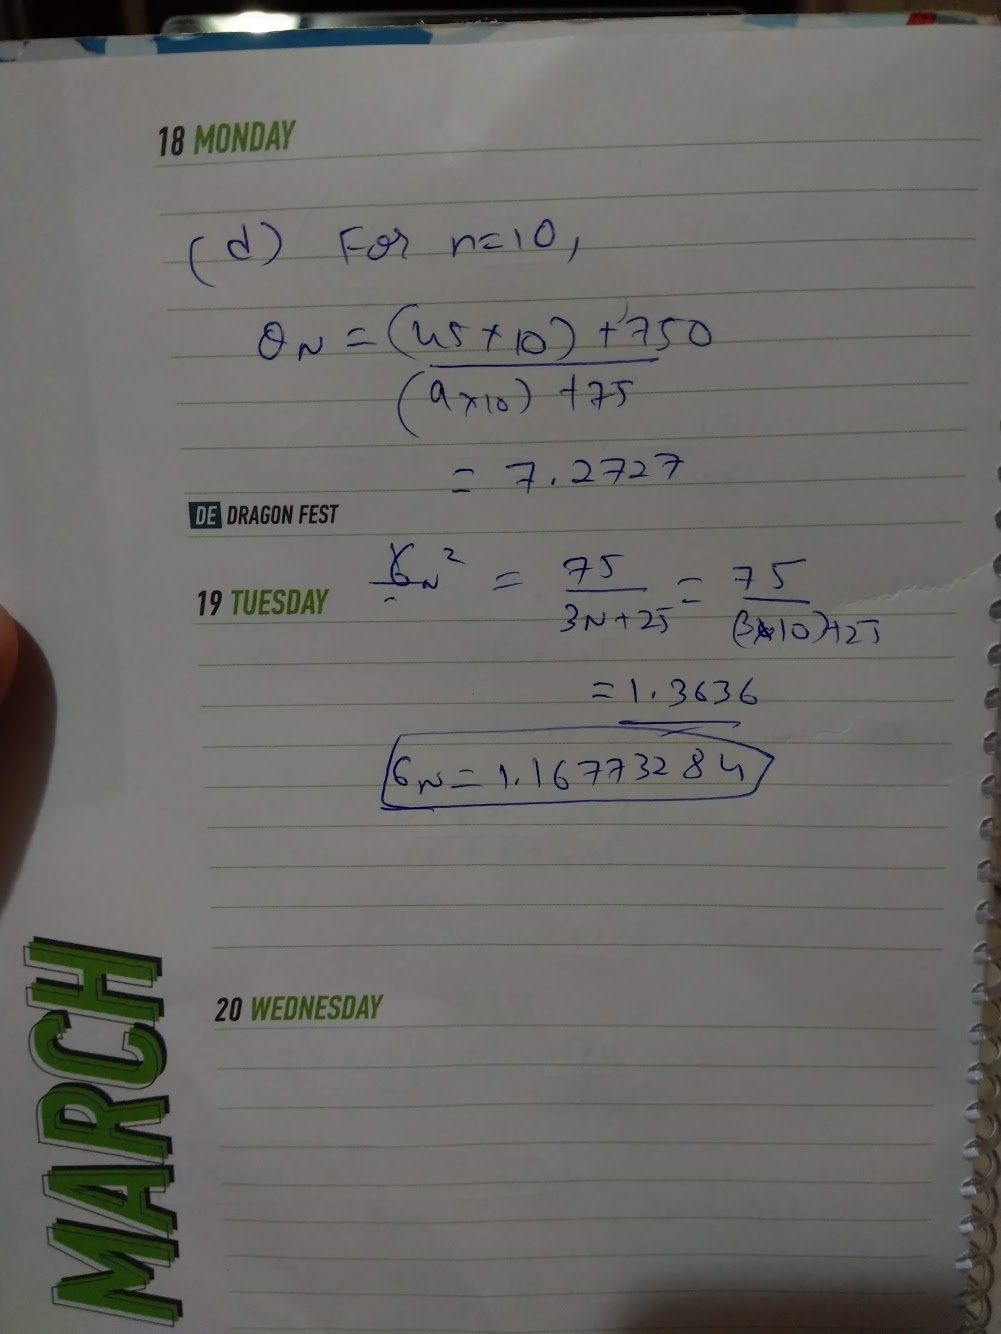 18 MONDAY
(d) For n=10,
θN = (45×10) + 750
(9×10) + 75
= 7.2727
DE DRAGON FEST
19 TUESDAY
σN² = 75 / 3N+25 = 75 / (3×10)+25
= 1.3636
σN = 1.16773284
20 WEDNESDAY
MARCH